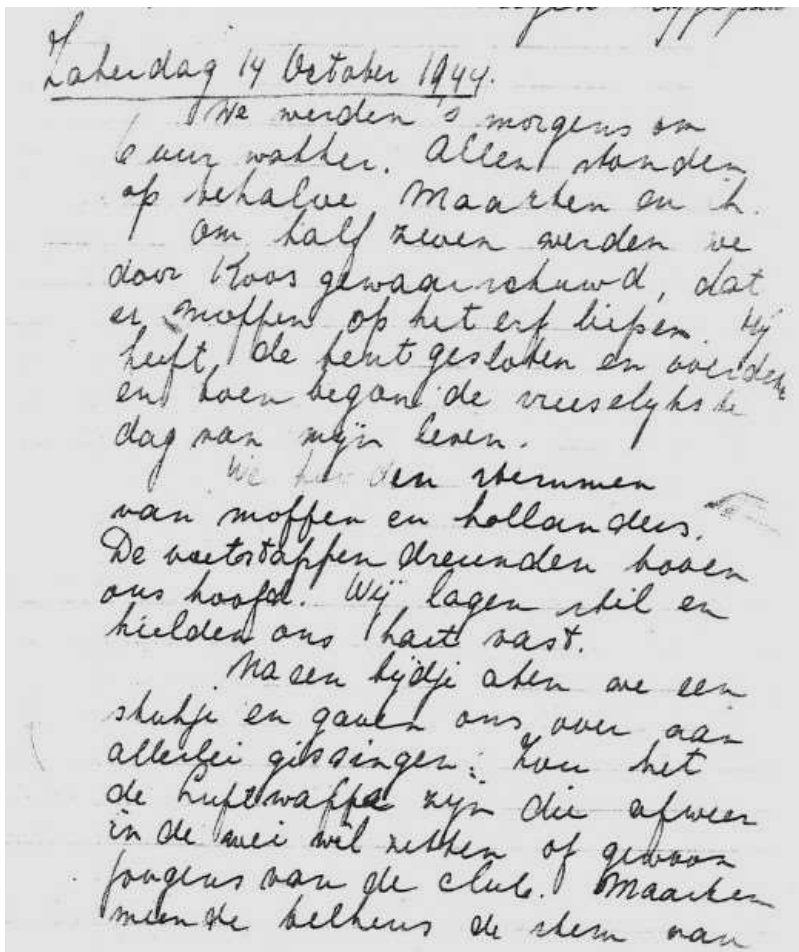 Zaterdag 14 October 1944.
We werden 's morgens om
6 uur wakker. Allen stonden
op behalve Maarten en ik.
Om half zeven werden we
door Koos gewaarschuwd, dat
er moffen op het erf liepen. Hij
heeft de tent gesloten en
en toen begon de vreeselykste
dag van mijn leven.
We hoorden stemmen
van moffen en hollanders.
De voetstappen dreunden boven
ons hoofd. Wij lagen stil en
hielden ons hart vast.
Na een tijdje aten we een
stukje en gaven ons over aan
allerlei gissingen: Zou het
de Luftwaffe zijn die afweer
in de wei wil zetten of gewoon
jongens van de club. Maarten
meende telkens de stem van